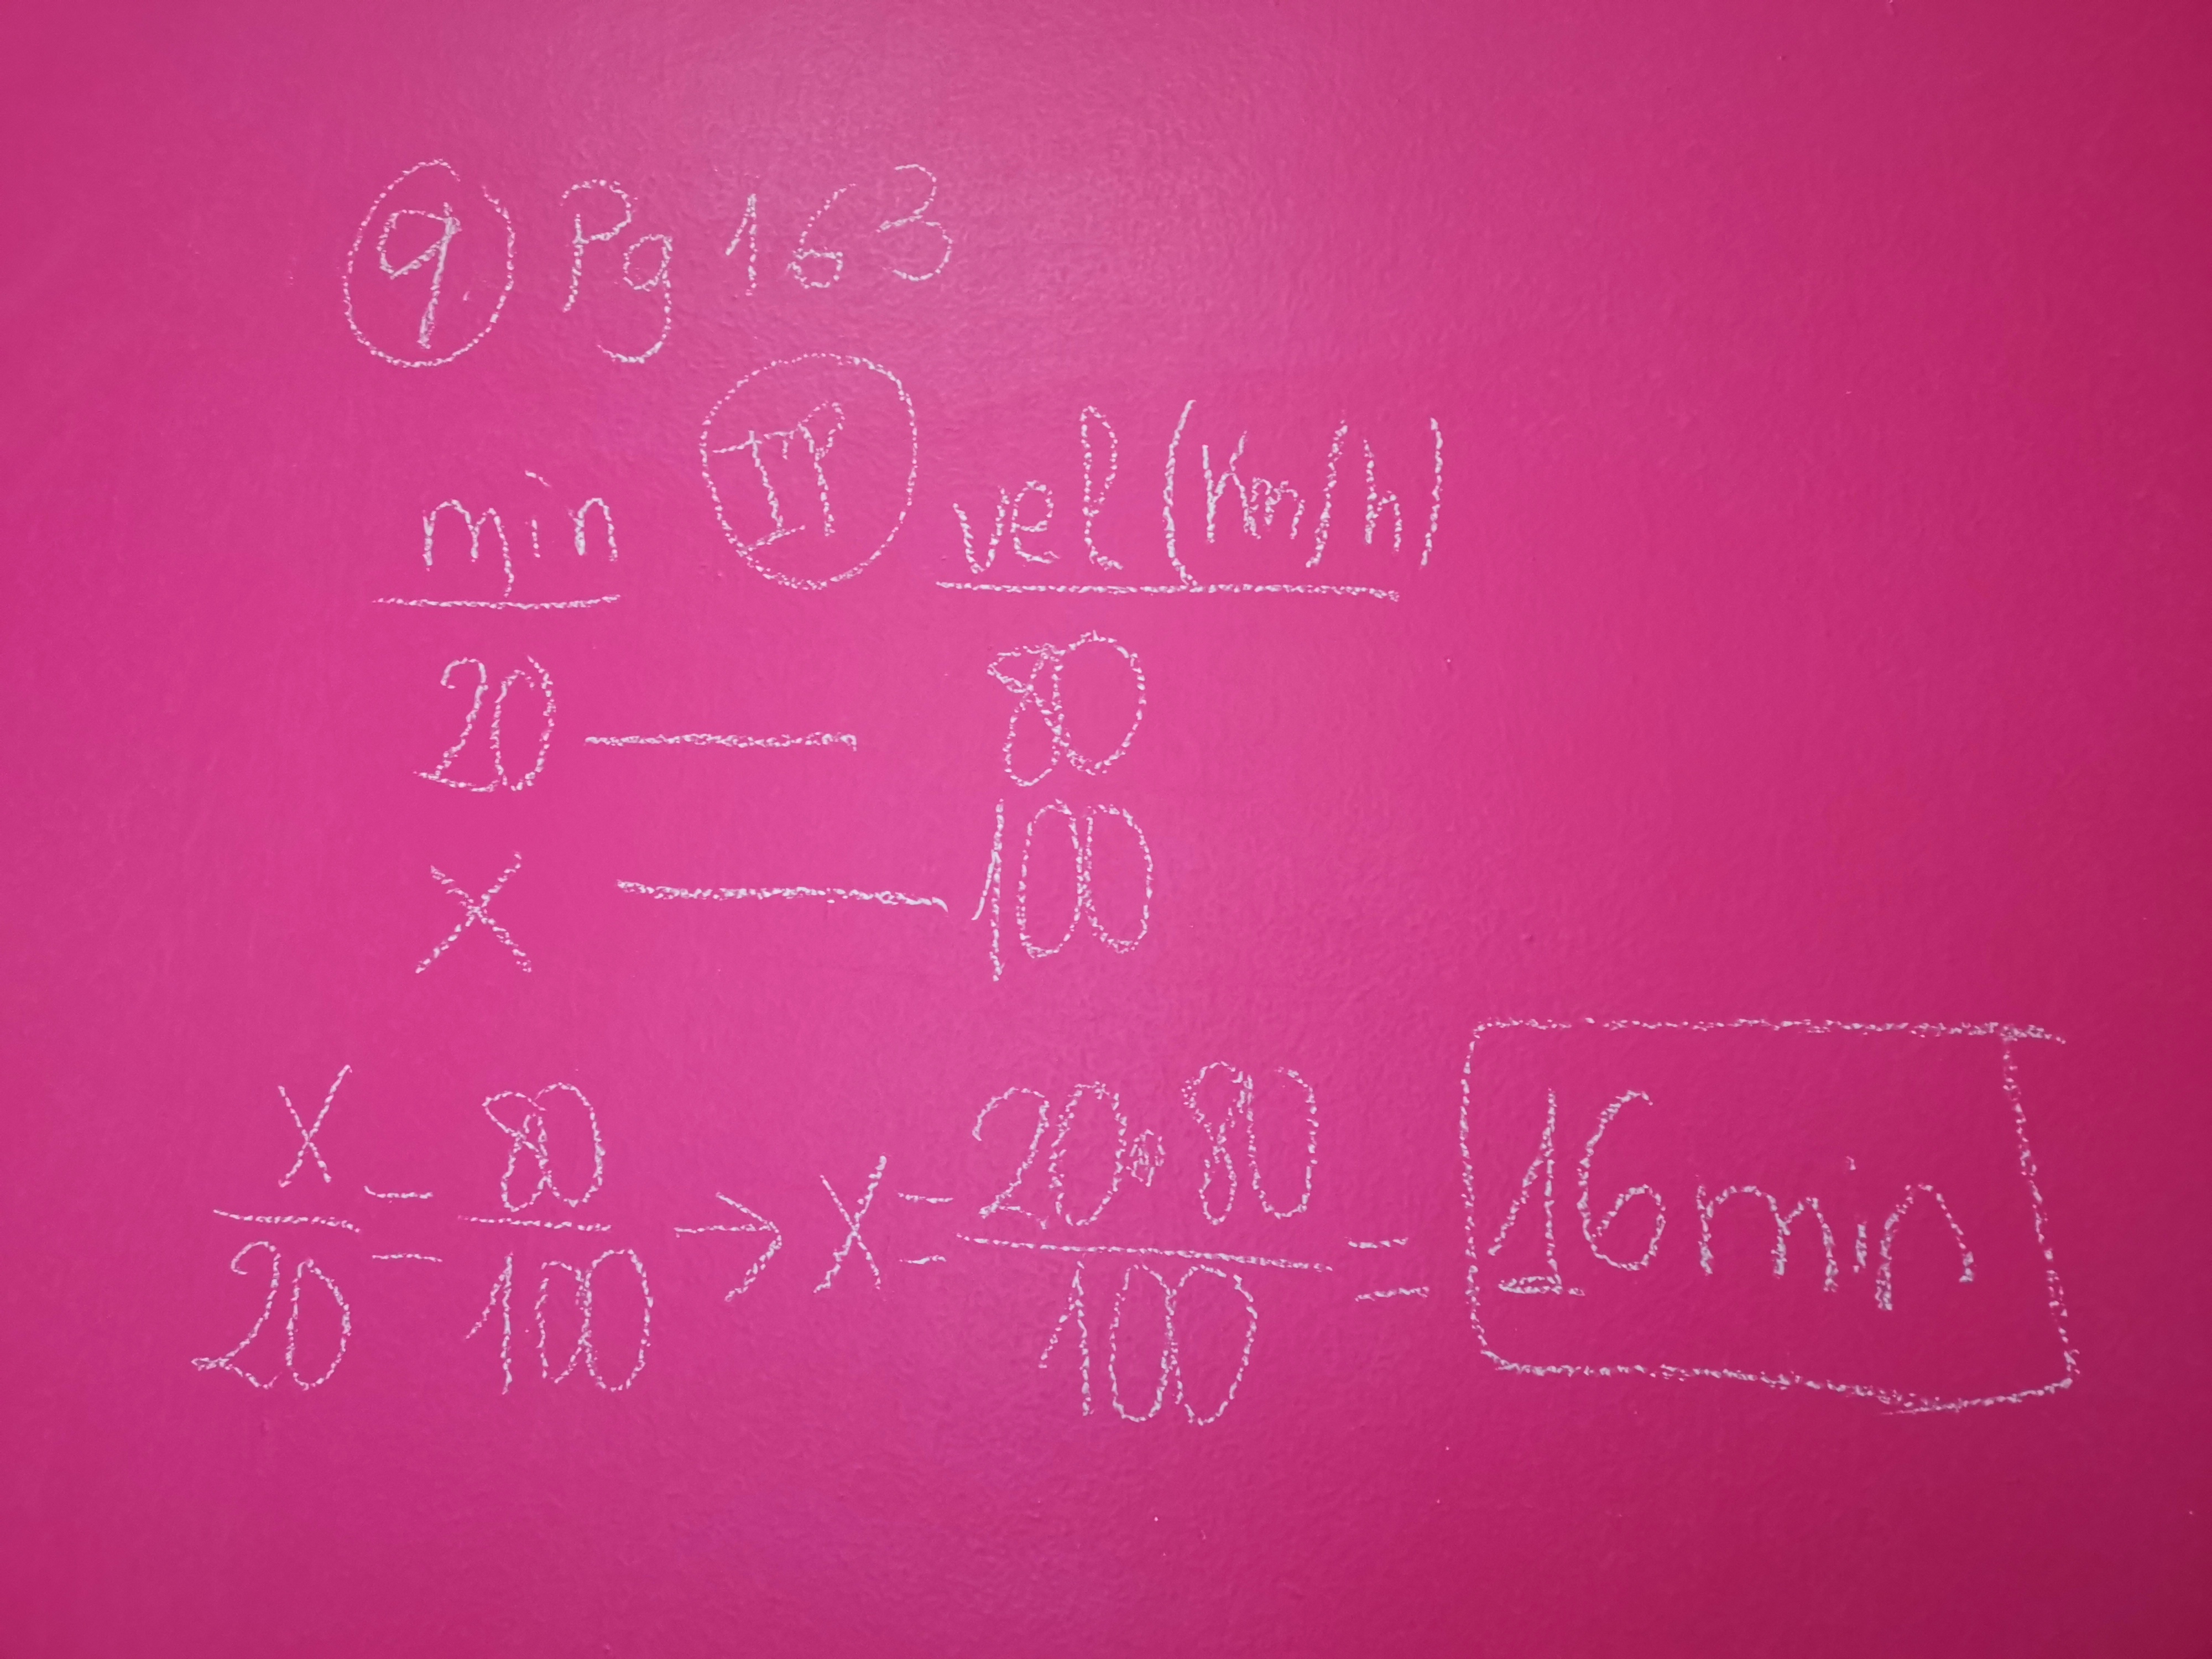 9 Pg 163
min IP vel (Km/h)
20 — 80
x — 100
x/20 = 80/100 → x = 20•80/100 = 16min